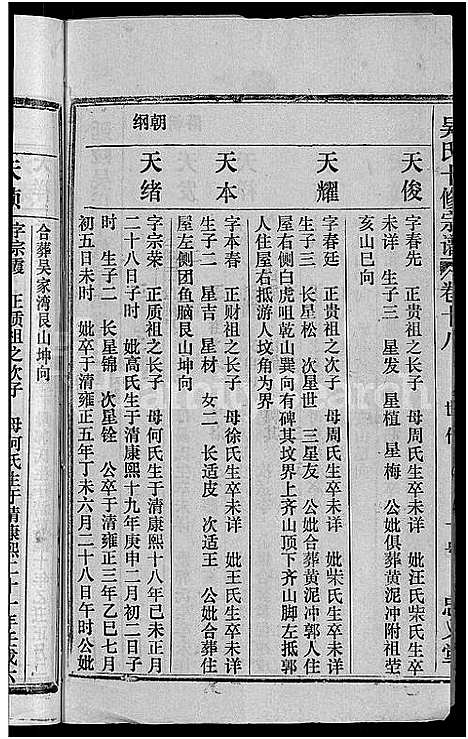 吴氏十修宗谱 卷十八
天俊
字春先 正贵祖之长子 母周氏生卒未详 妣汪氏柴氏生卒
未详 生子三 星发 星植 星梅 公妣俱葬黄泥冲附祖茔
亥山巳向
天耀
字春廷 正贵祖之次子 母周氏生卒未详 妣柴氏生卒未详
生子三 长星松 次星世 三星友 公妣合葬黄泥冲郭人住
屋右侧白虎咀乾山巽向有碑其坟界上齐山顶下齐山脚左抵郭
人住屋右抵游人坟角为界
天本
字本春 正财祖之长子 母徐氏生卒未详 妣王氏生卒未详
生子二 星吉 星材 女二 长适皮 次适王 公妣合葬住
屋左侧团鱼脑艮山坤向
朝纲
天绪
字宗荣 正质祖之长子 母何氏生于清康熙十八年己未正月
二十八日子时 妣高氏生于清康熙十九年庚申二月初二日子
时 生子二 长星锦 次星铨 公卒于清雍正三年乙巳七月
初五日未时 妣卒于清雍正五年丁未六月二十八日午时公妣
合葬吴家湾艮山坤向
字宗霞 正质祖之次子 母何氏生于清康熙二十